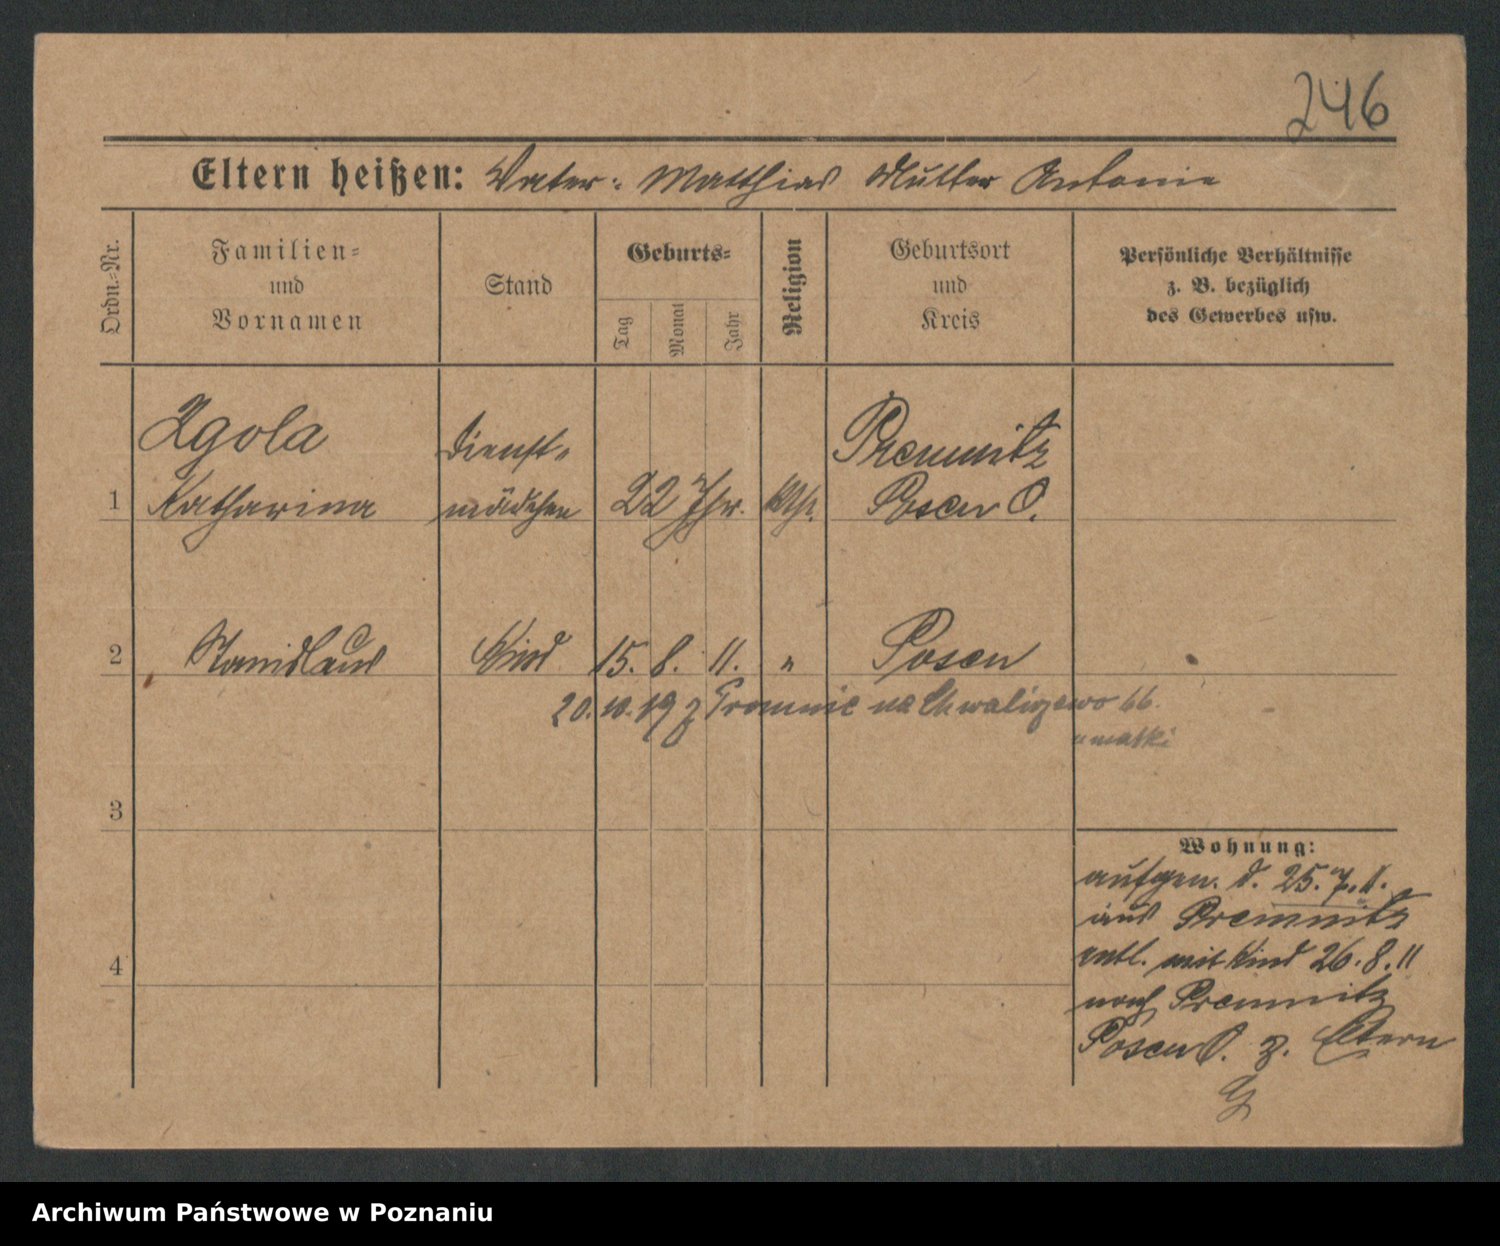 246
Eltern heißen: Vater: Matthias Mutter Antonie
Ordn.=Nr.
Familien=
und
Vornamen
Stand
Geburts=
Tag
Monat
Jahr
Religion
Geburtsort
und
Kreis
Persönliche Verhältnisse
z. B. bezüglich
des Gewerbes usw.
1
Zgola
Katharina
Dienst=
mädchen
22 Jhr.
kth.
Premnitz
Posen O.
2
Stanislaus
Kind
15. 8. 11.
"
Posen
20. 10. 19 z Promnic na Chwaliszewo 66.
u matki
3
4
Wohnung:
aufgen. d. 25. 7. 11.
aus Premnitz
entl. mit Kind 26. 8. 11
nach Premnitz
Posen O. z. Eltern
Archiwum Państwowe w Poznaniu